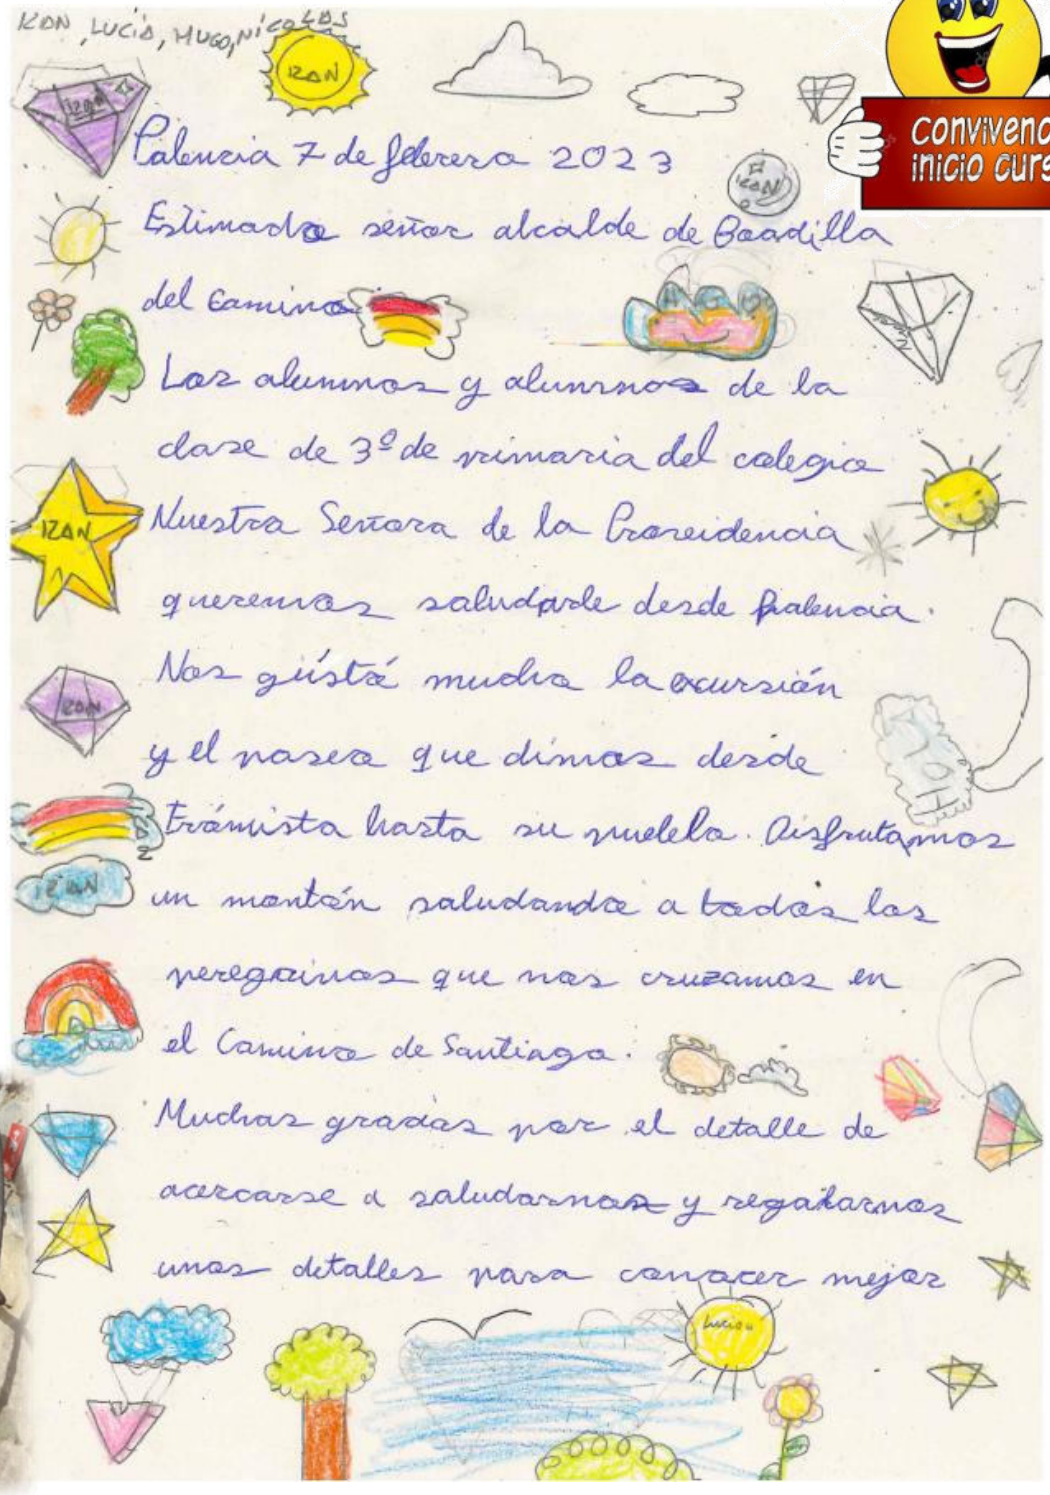 IZAN, LUCÍA, HUGO, NICOLAS
IZAN
IZAN
CONVIVENC
INICIO CURS
Palencia 7 de febrero 2023
IZAN
Estimado señor alcalde de Boadilla
del Camino
Los alumnos y alumnas de la
clase de 3º de primaria del colegio
Nuestra Señora de la Providencia
IZAN
queremos saludarle desde Palencia.
Nos gustó mucho la excursión
IZAN
y el paseo que dimos desde
Frómista hasta su pueblo. Disfrutamos
IZAN
un montón saludando a todos los
peregrinos que nos cruzamos en
el Camino de Santiago.
Muchas gracias por el detalle de
acercarse a saludarnos y regalarnos
unos detalles para conocer mejor
Lucía